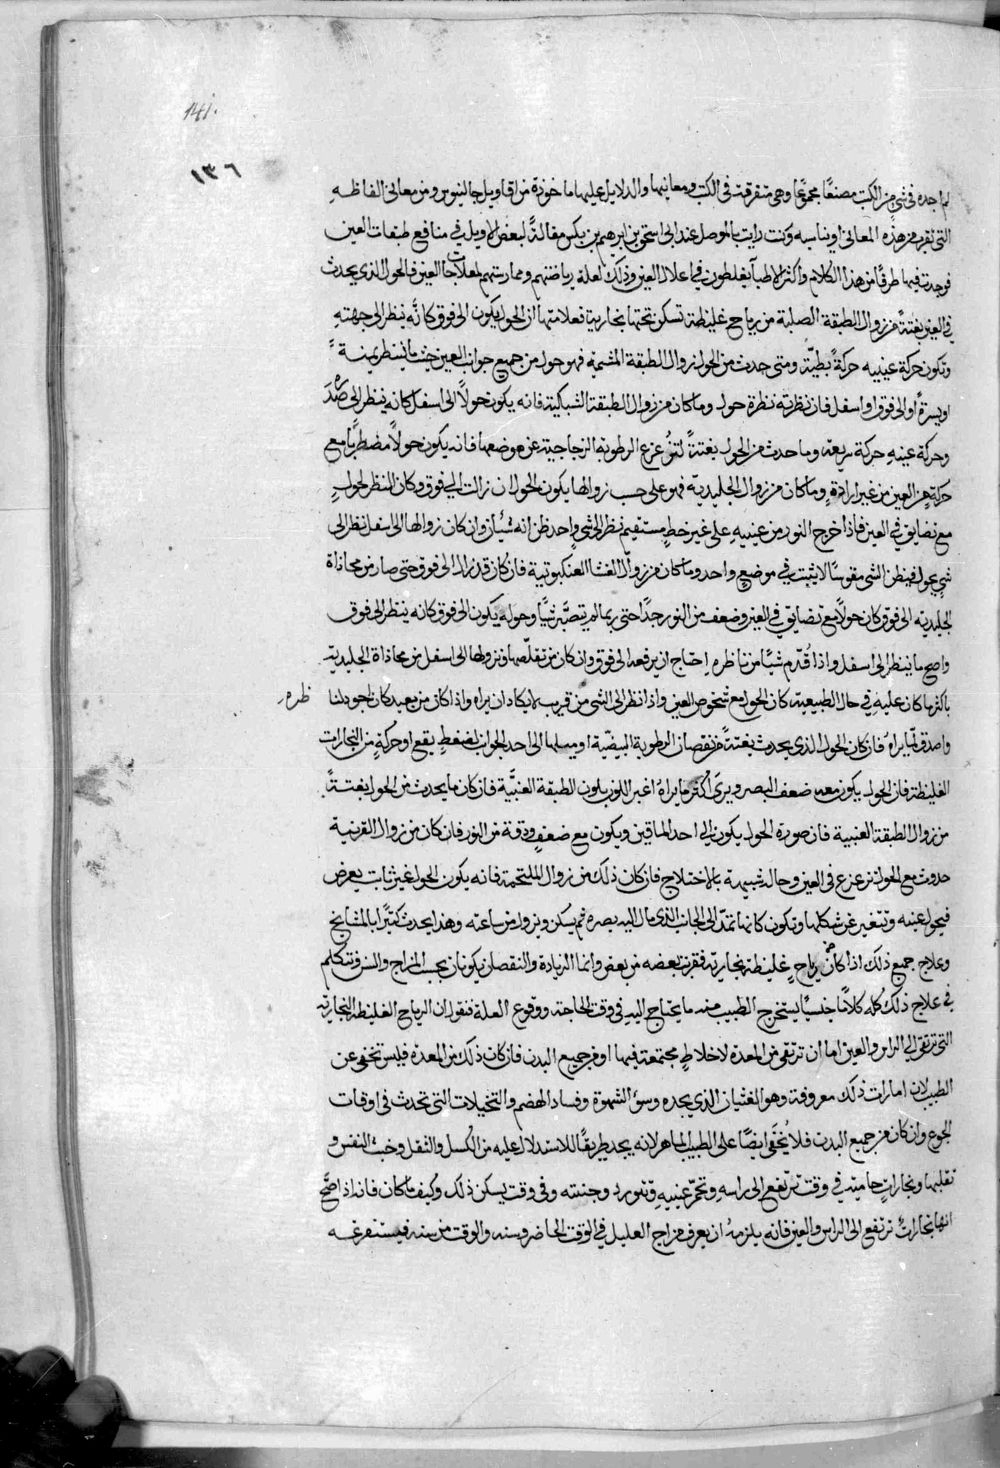 141.
١٣٦
لم اجده فى شئ من الكتب مصنفًا مجموعًا وهى متفرقة فى الكتب ومعانيها والدلايل عليها ماخوذة من اقاويل جالينوس ومن معانى الفاظه
التى تقرب من هذه المعانى او يناسبه وكنت رايت بالموصل عند ابى اسحق بن ابرهيم بن بكس مقالةً لبعض الاويل فى منافع طبقات العين
فوجدت فيها طرفًا من هذا الكلام واكثر الاطبآ يغلطون فى اعلال العين وذلك لعلة رياضتهم وممارستهم لعلاجات العين فالحول الذى يحدث
فى العين بغتةً من زوال الطبقة الصلبة من رياح غليظة تسكن تحتها بخارية فعلامتها ان الحول يكون الى فوق كانه ينظر الى جهته
وتكون حركة عينيه حركةً بطيّة ومتى حدث من الحول زوال الطبقة المشمية فهو حول من جميع جوانب العين حيث ما ينظر يمنةً
او يسرةً او الى فوق او اسفل فان نظرته نظرة حول وما كان من زوال الطبقة الشبكية فانه يكون حولًا الى اسفل كانه ينظر الى صدره
وحركة عينه حركة سريعة وما حدث من الحول بغتةً لتزعزع الرطوبة الزجاجية عن موضعها فانه يكون حولًا مضطربًا مع
حركةٍ من العين من غير ارادةٍ وما كان من زوال الجليدية فهو على حسب زوالها يكون الحول ان زالت الى فوق وكان النظر لحول
مع تضايق فى العين فاذا خرج النور من عينيه على غير خطٍ مستقيم نظر الى شئ واحد ظن انه شيأن وان كان زوالها الى اسفل نظر الى
شئٍ حول فيظن الشئ مقوسًا لا يثبت فى موضعٍ واحد وما كان من زوال الغشا العنكبوتية فان كان قد زال الى فوق حتى صار من محاذاة
الجليدية الى فوق كان حولًا مع تضايق فى العين وضعف من النور جدًا حتى ربما لم يتبصّر شيًا وحوله يكون الى فوق كانه ينظر الى فوق
واصح ما ينظر الى اسفل واذا قُدّم شيًا من ناظره احتاج ان يرفعه الى فوق وان كان من تقلّصها ونزولها الى اسفل من محاذاة الجليدية
باكثر ما كان عليه فى حال الطبيعية كان الحول مع شخوص العين واذا نظر الى الشئ من قريب لا يكاد ان يراه واذا كان من بعيد كان اجود لنا ظره
واصدق لما يراه فان كان الحول الذى يحدث بغتةً من نقصان الرطوبة البيضية او ميلها الى احد الجوانب لضغطٍ يقع او حركةٍ من البخارات
الغليظة فان الحول يكون معه ضعف البصر ويرى اكثر ما يراه اغبر اللون بلون الطبقة العنبيّة فان كان ما يحدث من الحول بغتةً
من زوال الطبقة العنبية فان صورة الحول يكون الى احد الماقين ويكون مع ضعفٍ ودقة من النور فان كان من زوال القرنية
حدوث مع الحول تزعزع فى العين وحاله شبيهة بالاختلاج فان كان ذلك من زوال الملتحمة فانه يكون الحول غير ثابت يعرض
فيحول عينه وتتغير عن شكلها وتكون كانها تمتد الى الجانب الذى مال اليه بصره ثم يسكن ويزول من ساعته وهذا يحدث كثيرًا بالمشايخ
وعلاج جميع ذلك اذا كان من رياحٍ غليظة بخارية فقريب بعضه من بعض وانما الزيادة والنقصان يكونان بحسب المزاج والسن ونتكلم
فى علاج ذلك كله كلامًا جنسيًا يستخرج الطبيب منه ما يحتاج اليه فى وقت الحاجة ووقوع العلة فنقول ان الرياح الغليظة البخارية
التى ترتقى الى الراس والعين اما ان ترتقى من المعدة لاخلاطٍ مجتمعة فيها او من جميع البدن فان كان ذلك من المعدة فليس تخفى عن
الطبيب لان امارات ذلك معروفة وهو الغثيان الذى يجده وسؤ الشهوة وفساد الهضم والتخيلات التى تحدث فى اوقات
الجوع وان كان من جميع البدن فلا يُخفى ايضًا على الطبيب الماهر لانه يجد طريقًا للاستدلال عليه من الكسل والثقل وخبث النفس و
تقلبها وبخاراتٍ حامية فى وقت ترتفع الى راسه وتحمرّ عينيه وتتورد وجنته وفى وقت يسكن ذلك وكيف ما كان فانه اذا صحّ
انها بخاراتٌ ترتفع الى الراس والعين فانه يلزمه ان يعرف مزاج العليل فى الوقت الحاضر وسنه والوقت من سنه فيستفرغه